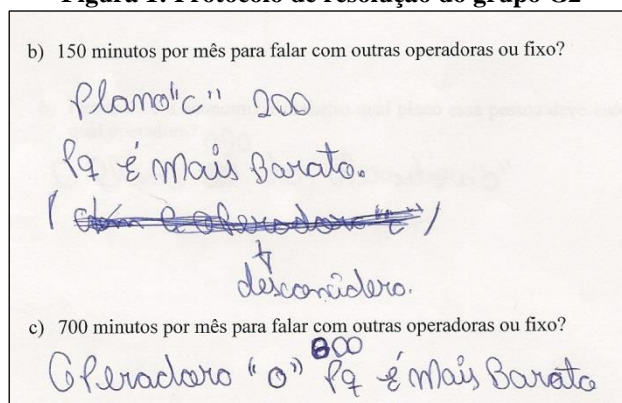 Figura 1: Protocolo de resolução do grupo G2
b) 150 minutos por mês para falar com outras operadoras ou fixo?
Plano "c" 200
Pq é mais Barato.
(com a operadora "c")
desconcidero.
c) 700 minutos por mês para falar com outras operadoras ou fixo?
Operadora "O" 800 Pq é mais Barato